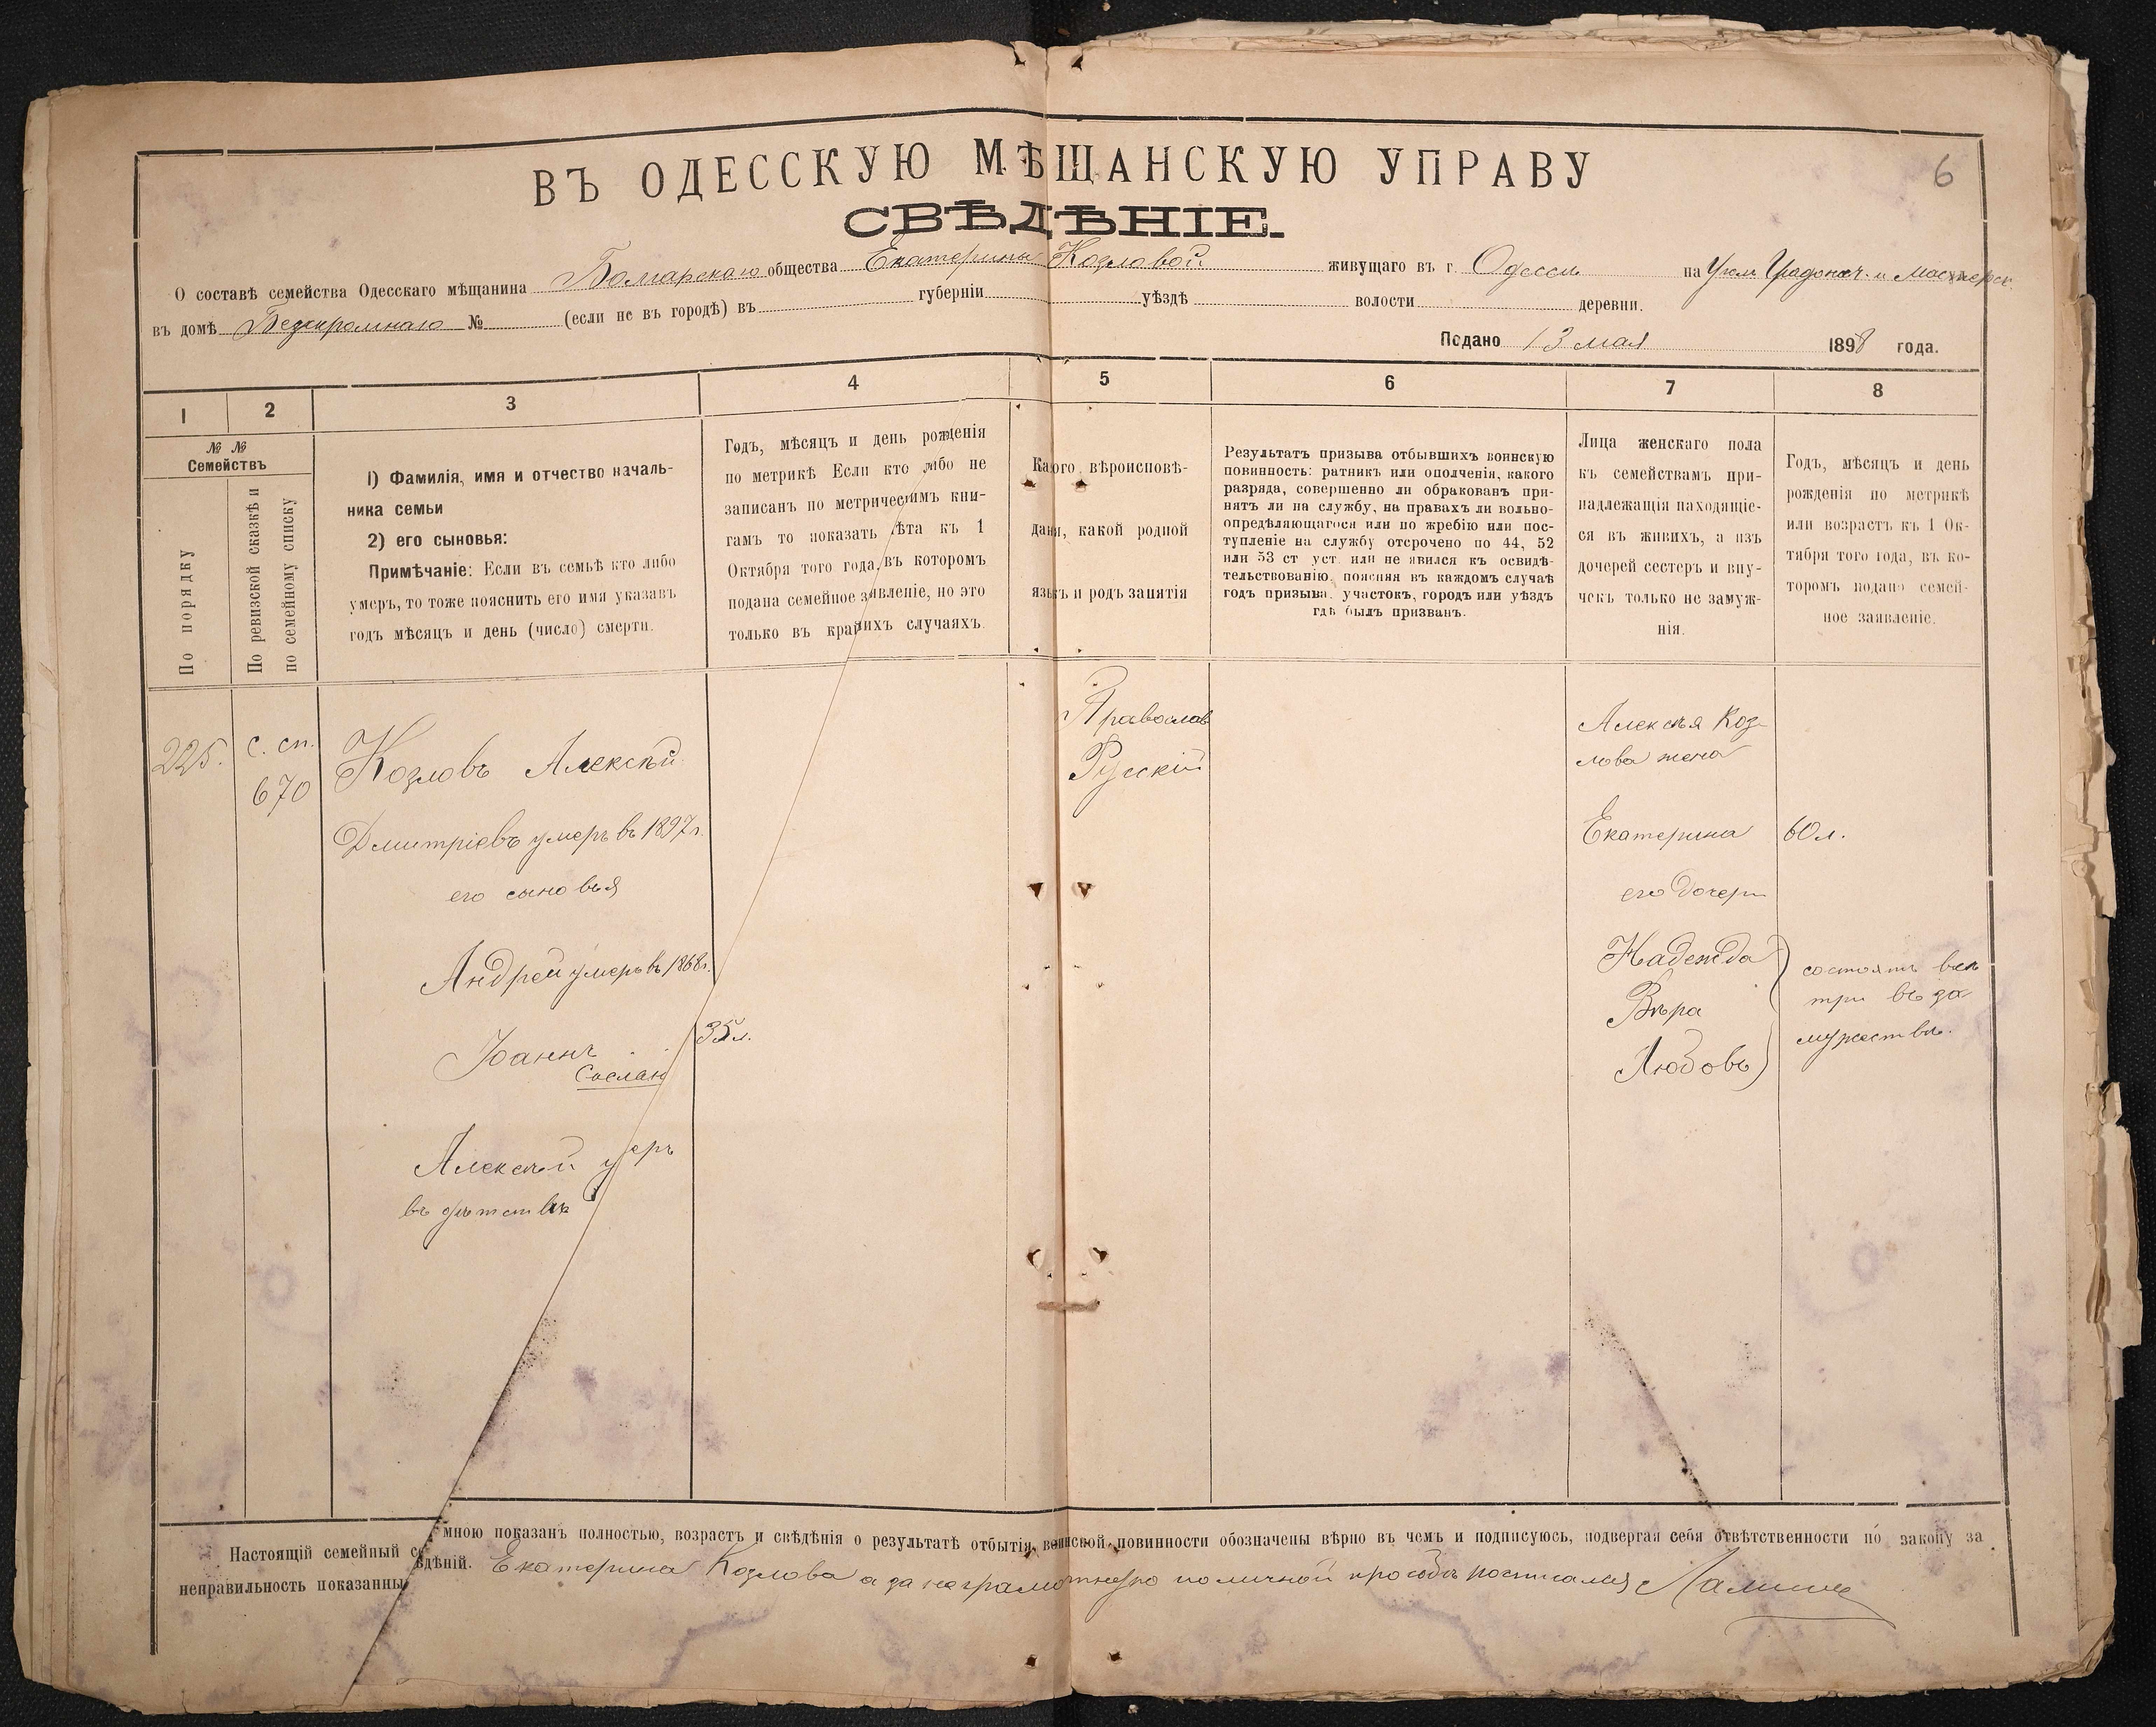 6
ВЪ ОДЕССКУЮ МѢЩАНСКУЮ УПРАВУ
СВѢДѢНІЕ.
О составѣ семейства Одесскаго мѣщанина Болгарскаго общества Екатерины Козловой живущаго въ г. Одессѣ на Угл. Градонач. и
въ домѣ № (если не въ городѣ) въ губерніи уѣздѣ волости деревни.
Подано 13 мая 1898 года.
1 2 3 4 5 6 7 8
№ №
Семействъ
По порядку
По ревизской сказкѣ и
по семейному списку
1) Фамилія, имя и отчество началь-
ника семьи
2) его сыновья:
Примѣчаніе: Если въ семьѣ кто либо
умеръ, то тоже пояснить его имя указавъ
годъ мѣсяцъ и день (число) смерти.
Годъ, мѣсяцъ и день рожденія
по метрикѣ Если кто либо не
записанъ по метрическимъ кни-
гамъ то показать лѣта къ 1
Октября того года, въ которомъ
подана семейное заявленіе, но это
только въ крайнихъ случаяхъ.
Какого вѣроисповѣ-
данія, какой родной
языкъ и родъ занятія
Результатъ призыва отбывшихъ воинскую
повинность: ратникъ или ополченія, какого
разряда, совершенно ли обракованъ при-
нятъ ли на службу, на правахъ ли вольно-
опредѣляющагося или по жребію или пос-
тупленіе на службу отсрочено по 44, 52
или 53 ст уст. или не явился къ освидѣ-
тельствованію. поясняя въ каждомъ случаѣ
годъ призыва. участокъ, городъ или уѣздъ
гдѣ былъ призванъ.
Лица женскаго пола
къ семействамъ при-
надлежащія находящіе-
ся въ живихъ, а изъ
дочерей сестеръ и вну-
чекъ только не замуж-
нія.
Годъ, мѣсяцъ и день
рожденія по метрикѣ
или возрастъ къ 1 Ок-
тября того года, въ ко-
торомъ подано семей-
ное заявленіе.
225.
с. сп.
670
Козловъ Алексѣй
Дмитріевъ умеръ въ 1897 г.
его сыновья
Андрей умеръ въ 1868 г.
Іоаннъ 35 л.
Сослан
Алексѣй умеръ
въ дѣтствѣ
Православ
Русскій
Алексѣя Коз-
лова жена
Екатерина 60 л.
его дочери
Надежда
Вѣра
Любовь
состоятъ всѣ
три въ за
мужествѣ.
Настоящій семейный мною показанъ полностью, возрастъ и свѣдѣнія о результатѣ отбытія воинской повинности обозначены вѣрно въ чемъ и подписуюсь, подвергая себя отвѣтственности по закону за
неправильность показанныхъ свѣдѣній. Екатерина Козлова а за неграмотную по личной просьбѣ росписался